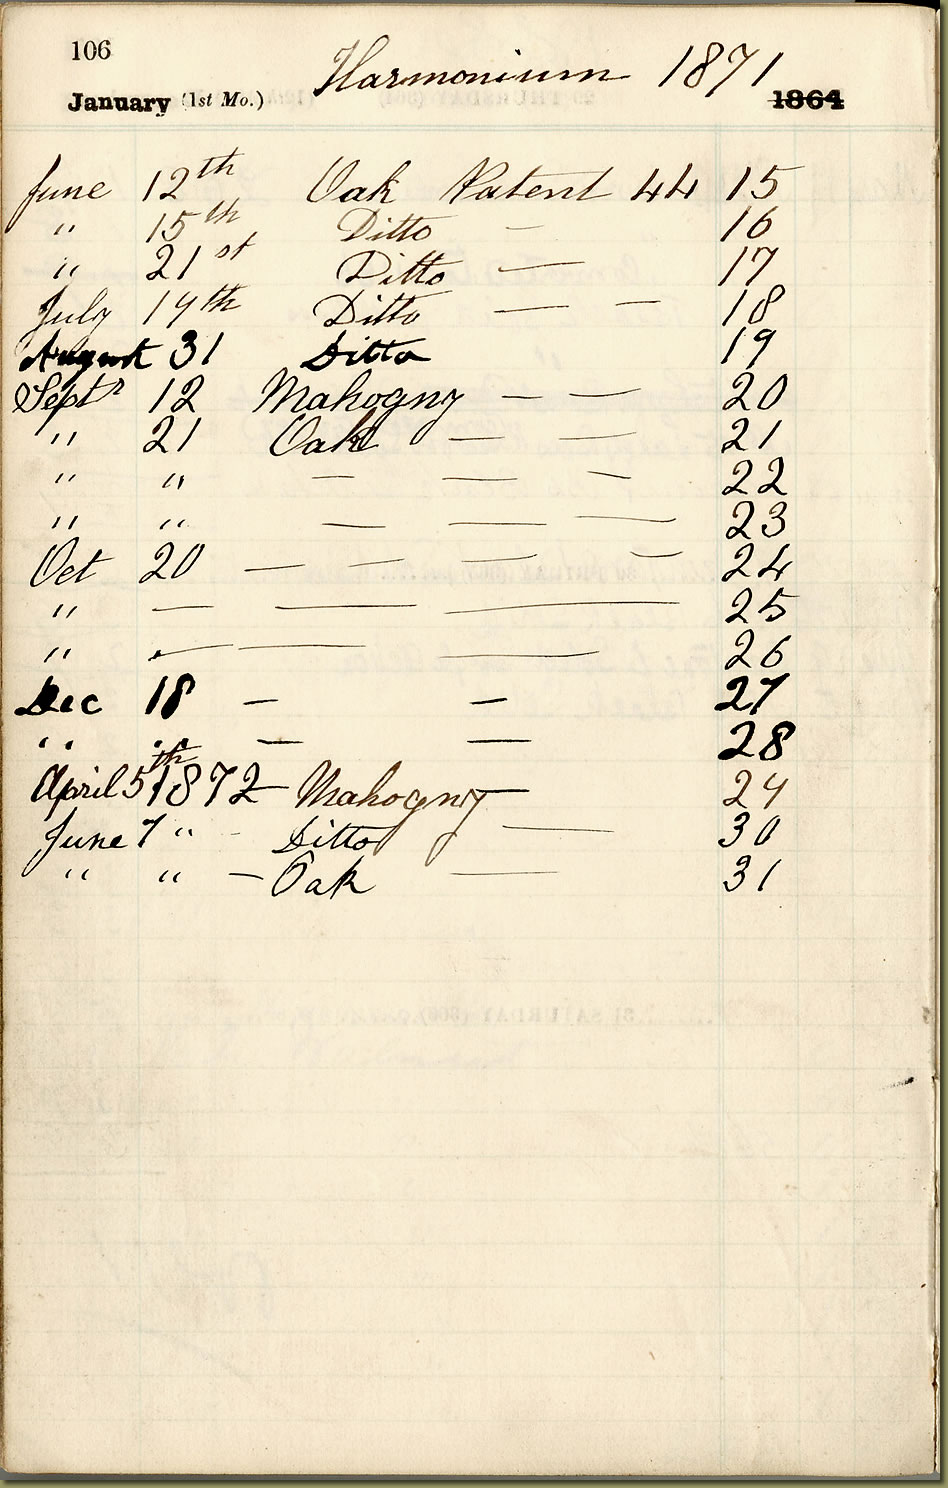 106
Harmonium 1871
January (1st Mo.) 1864
June 12th Oak Patent 44 15
" 15th Ditto — 16
" 21st Ditto — 17
July 19th Ditto — — 18
August 31 Ditto 19
Septr 12 Mahogny — — 20
" 21 Oak — — 21
" " — — — 22
" " — — — 23
Oct 20 — — — — 24
" — — — 25
" — — — 26
Dec 18 — — 27
" " — — 28
April 5th 1872 — Mahogny — 29
June 7 " - Ditto — 30
" " — Oak — 31